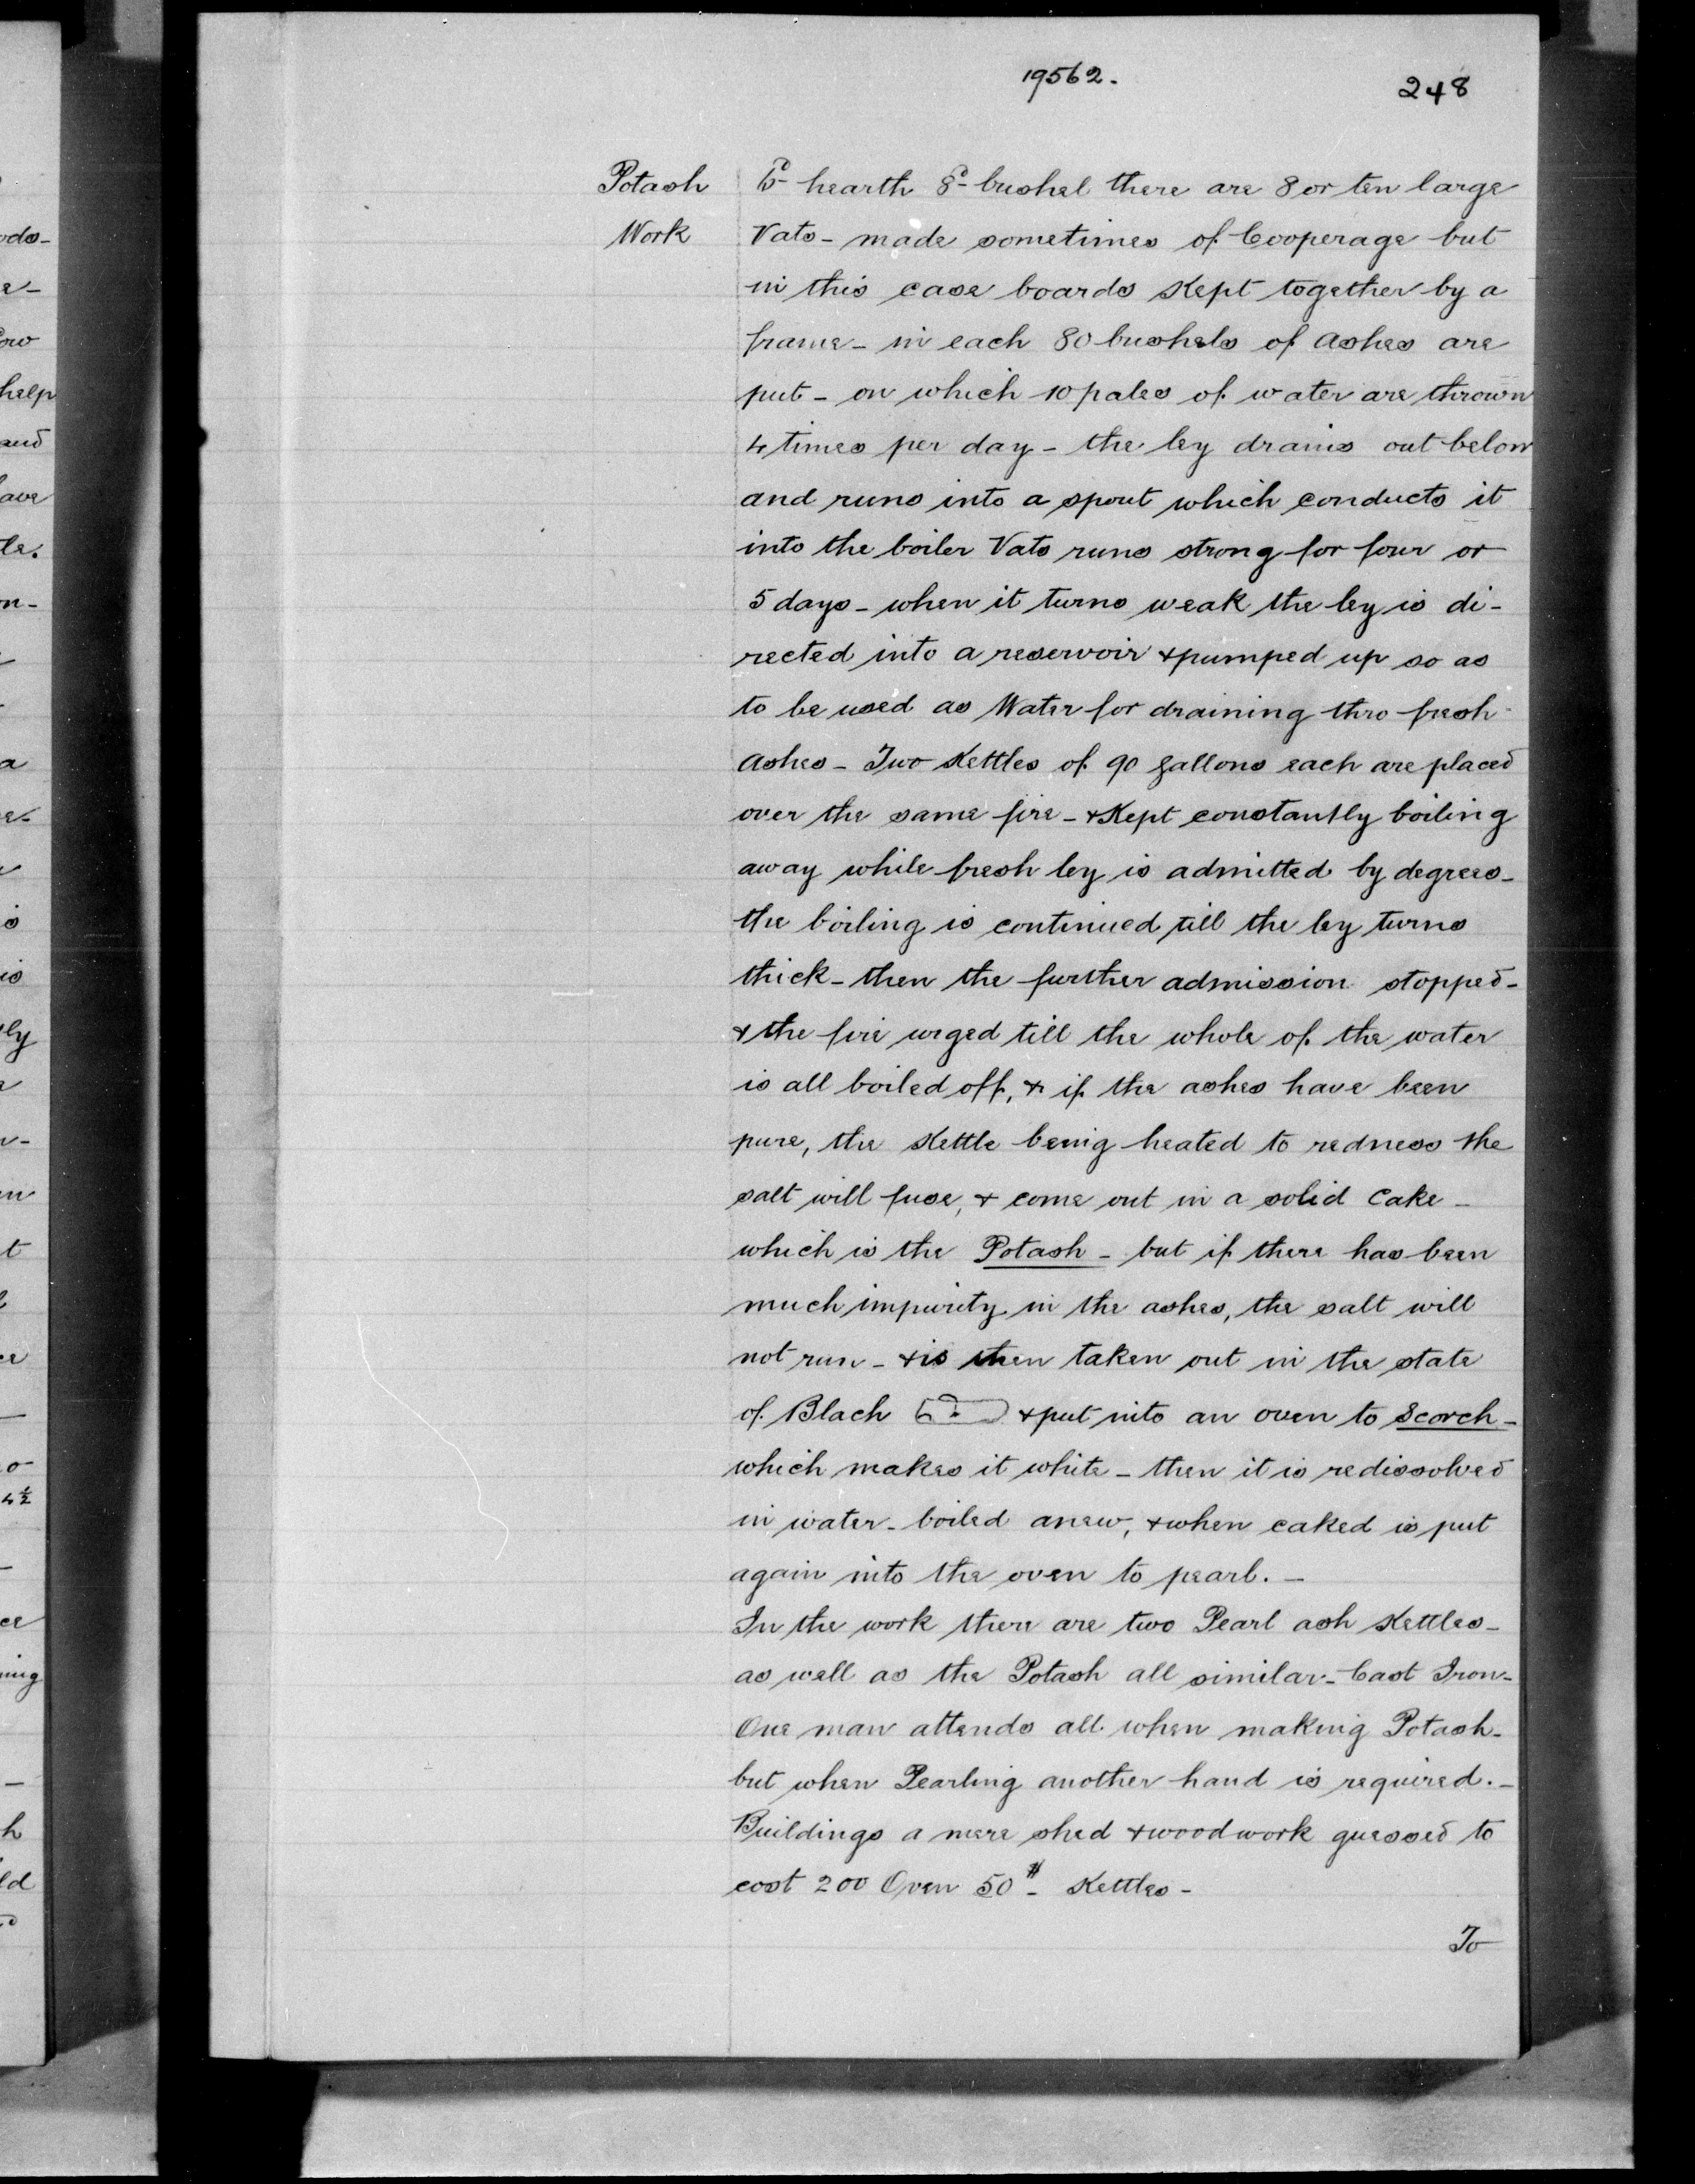 19562.
248
Potash
Work
hearth 8d bushel there are 8 or ten large
Vats - made sometimes of Cooperage but
in this case boards Kept together by a
frame - in each 80 bushels of ashes are
put - on which 10 pales of water are thrown
4 times per day - the ley drains out below
and runs into a spout which conducts it
into the boiler Vats runs strong for four or
5 days - when it turns weak the ley is di-
rected into a reservoir & pumped up so as
to be used as Water for draining thro fresh
Ashes - Two Kettles of 90 gallons each are placed
over the same fire - & Kept constantly boiling
away while fresh ley is admitted by degrees -
the boiling is continued till the ley turns
thick - then the further admission stopped -
& the fire urged till the whole of the water
is all boiled off, & if the ashes have been
pure, the Kettle being heated to redness the
salt will fuse, & come out in a solid Cake -
which is the Potash - but if there has been
much impurity in the ashes, the salt will
not run - & is then taken out in the state
of Blach & put into an oven to Scorch -
which makes it white - then it is redissolved
in water - boiled anew, & when caked is put
again into the oven to pearl. -
In the work there are two Pearl ash Kettles -
as well as the Potash all similar - Cast Iron -
One man attends all when making Potash -
but when Pearling another hand is required. -
Buildings a mere shed & woodwork guessed to
cost 200 Oven 50# - Kettles -
To
ods-
help
and
ly
4½